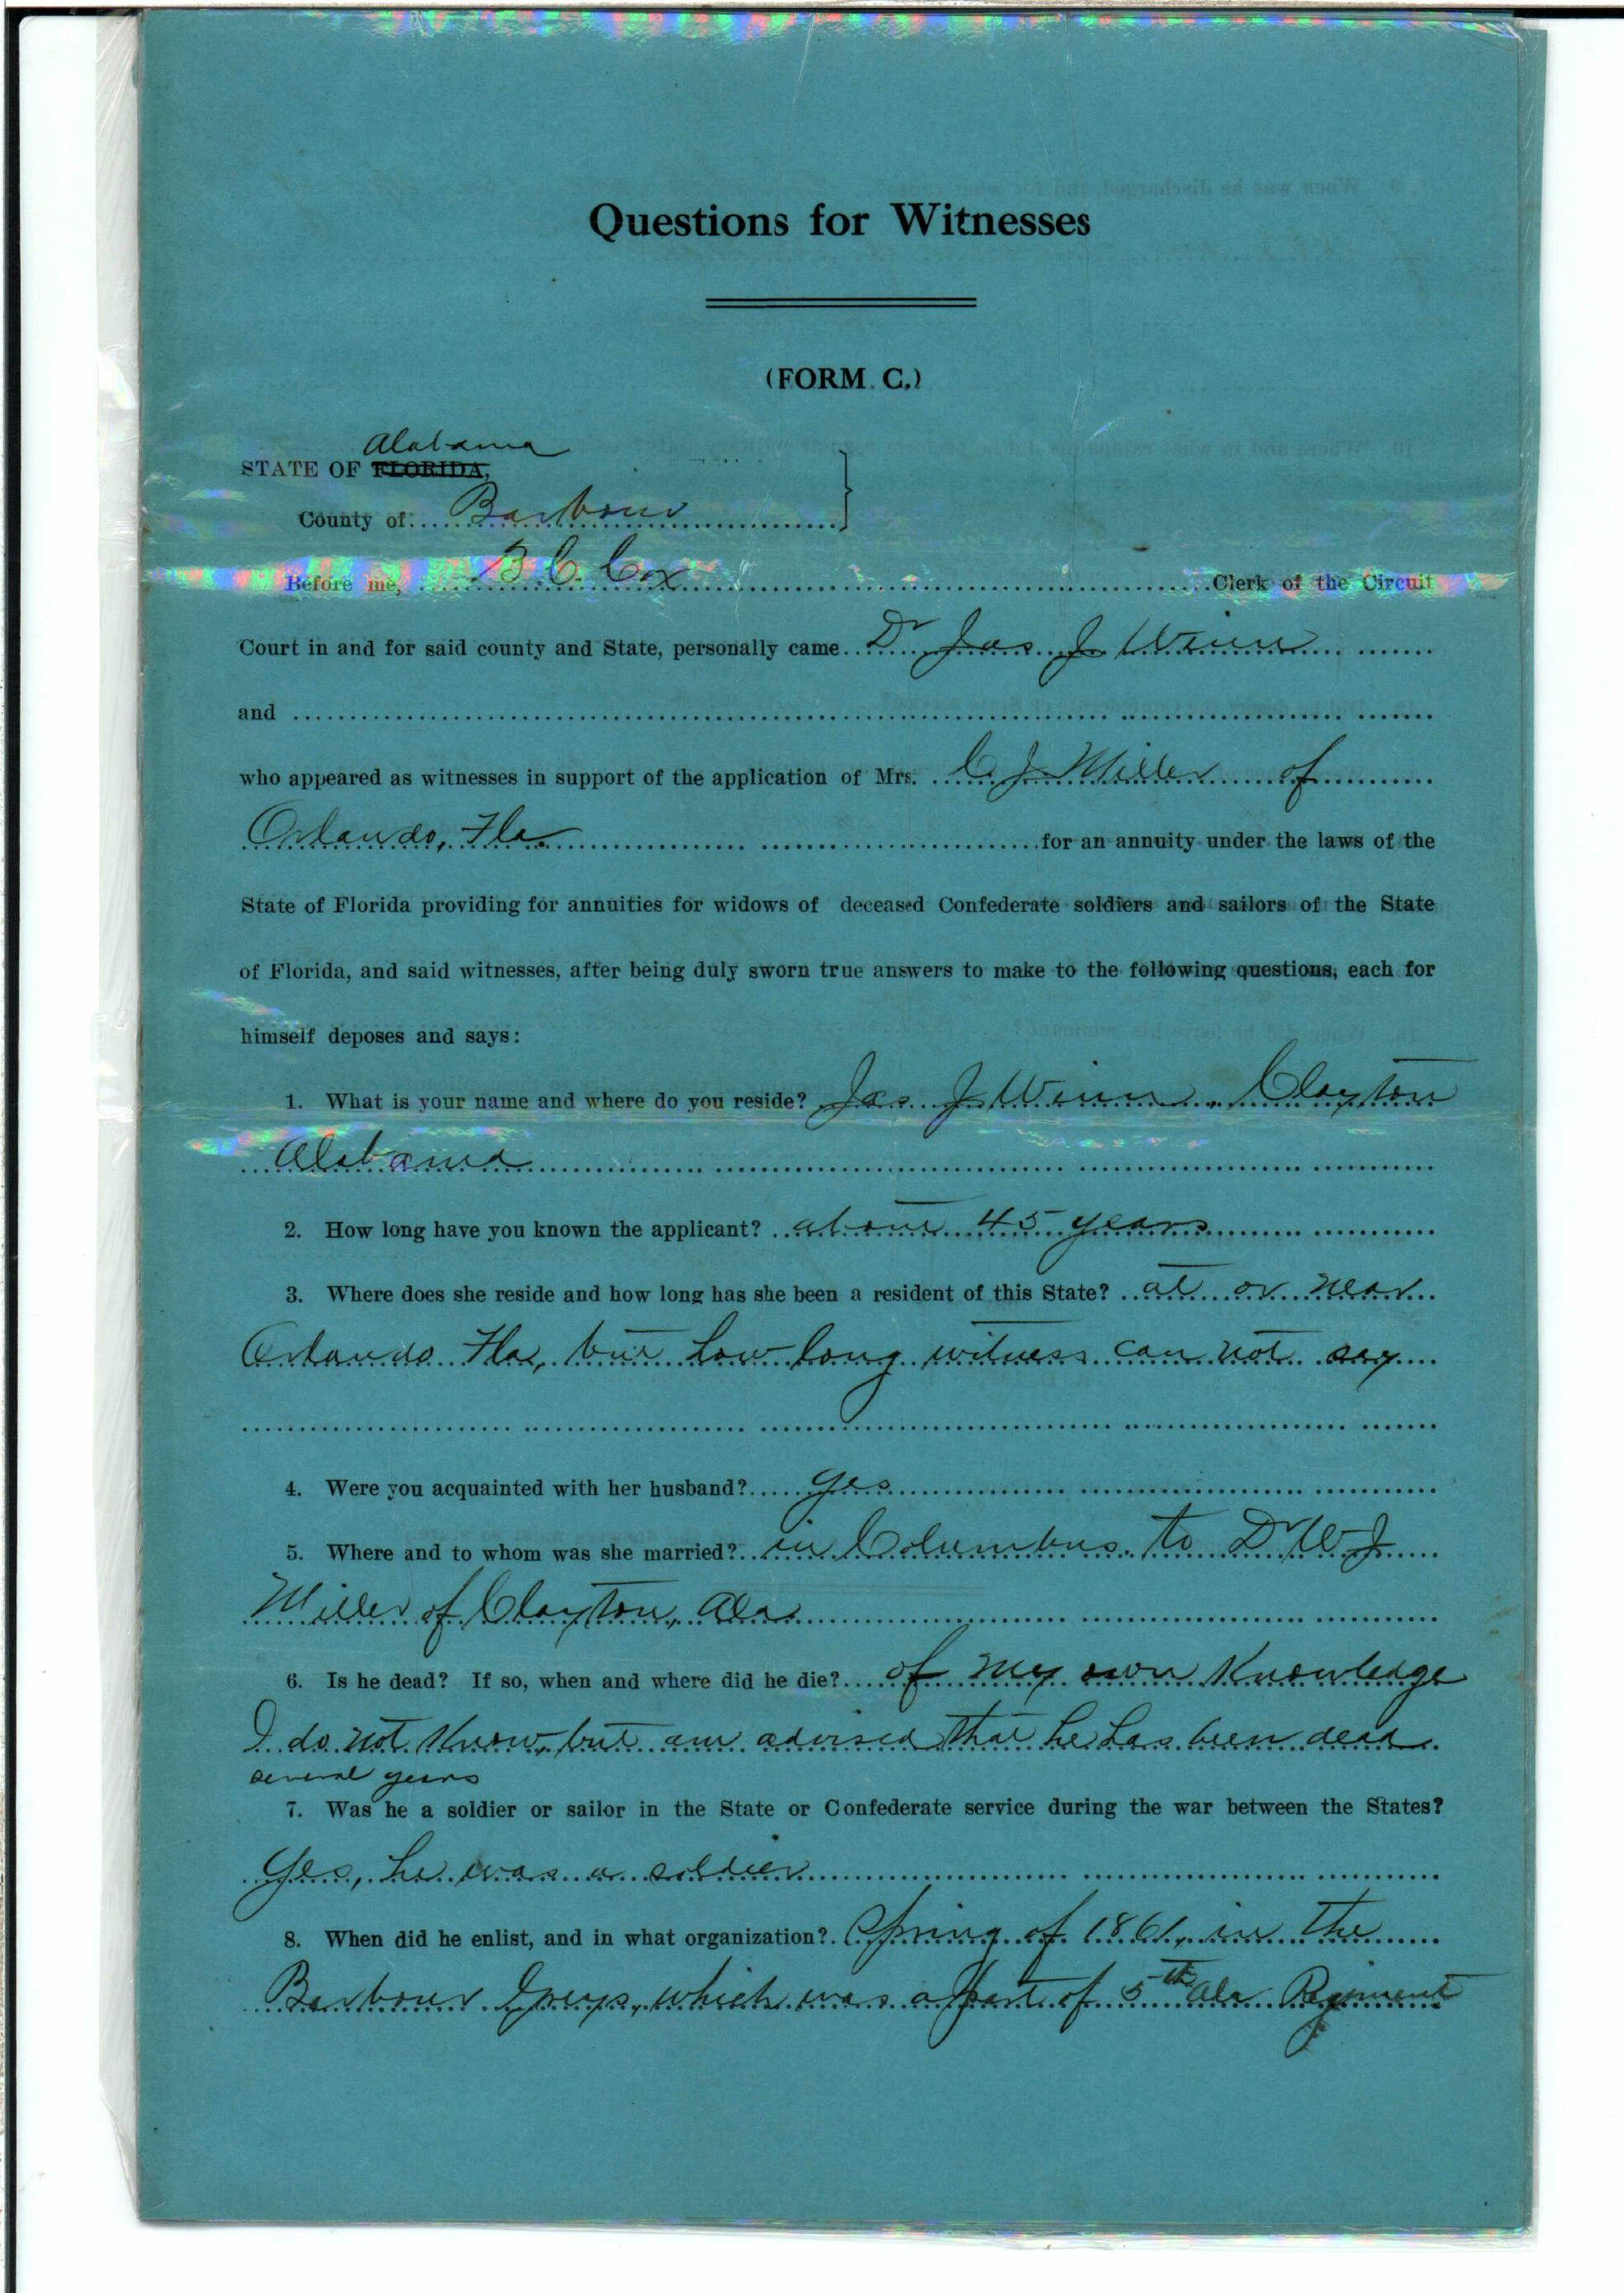 Questions for Witnesses
(FORM C.)
Alabama
STATE OF FLORIDA,
County of Barbour
Before me, B. C. Cox Clerk of the Circuit
Court in and for said county and State, personally came Dr Jas J Winn
and
who appeared as witnesses in support of the application of Mrs. C. J. Miller of
Orlando, Fla. for an annuity under the laws of the
State of Florida providing for annuities for widows of deceased Confederate soldiers and sailors of the State
of Florida, and said witnesses, after being duly sworn true answers to make to the following questions, each for
himself deposes and says:
1. What is your name and where do you reside? Jas. J Winn, Clayton
Alabama
2. How long have you known the applicant? about 45 years
3. Where does she reside and how long has she been a resident of this State? at or near
Orlando Fla, but how long witness can not say
4. Were you acquainted with her husband? Yes
5. Where and to whom was she married? in Columbus. to Dr W J
Miller of Clayton, Ala.
6. Is he dead? If so, when and where did he die? of my own Knowledge
I do not Know, but am advised that he has been dead
several years
7. Was he a soldier or sailor in the State or Confederate service during the war between the States?
Yes, he was a soldier
8. When did he enlist, and in what organization? Spring of 1861, in the
Barbour Greys, which was a part of 5th Ala Regiment